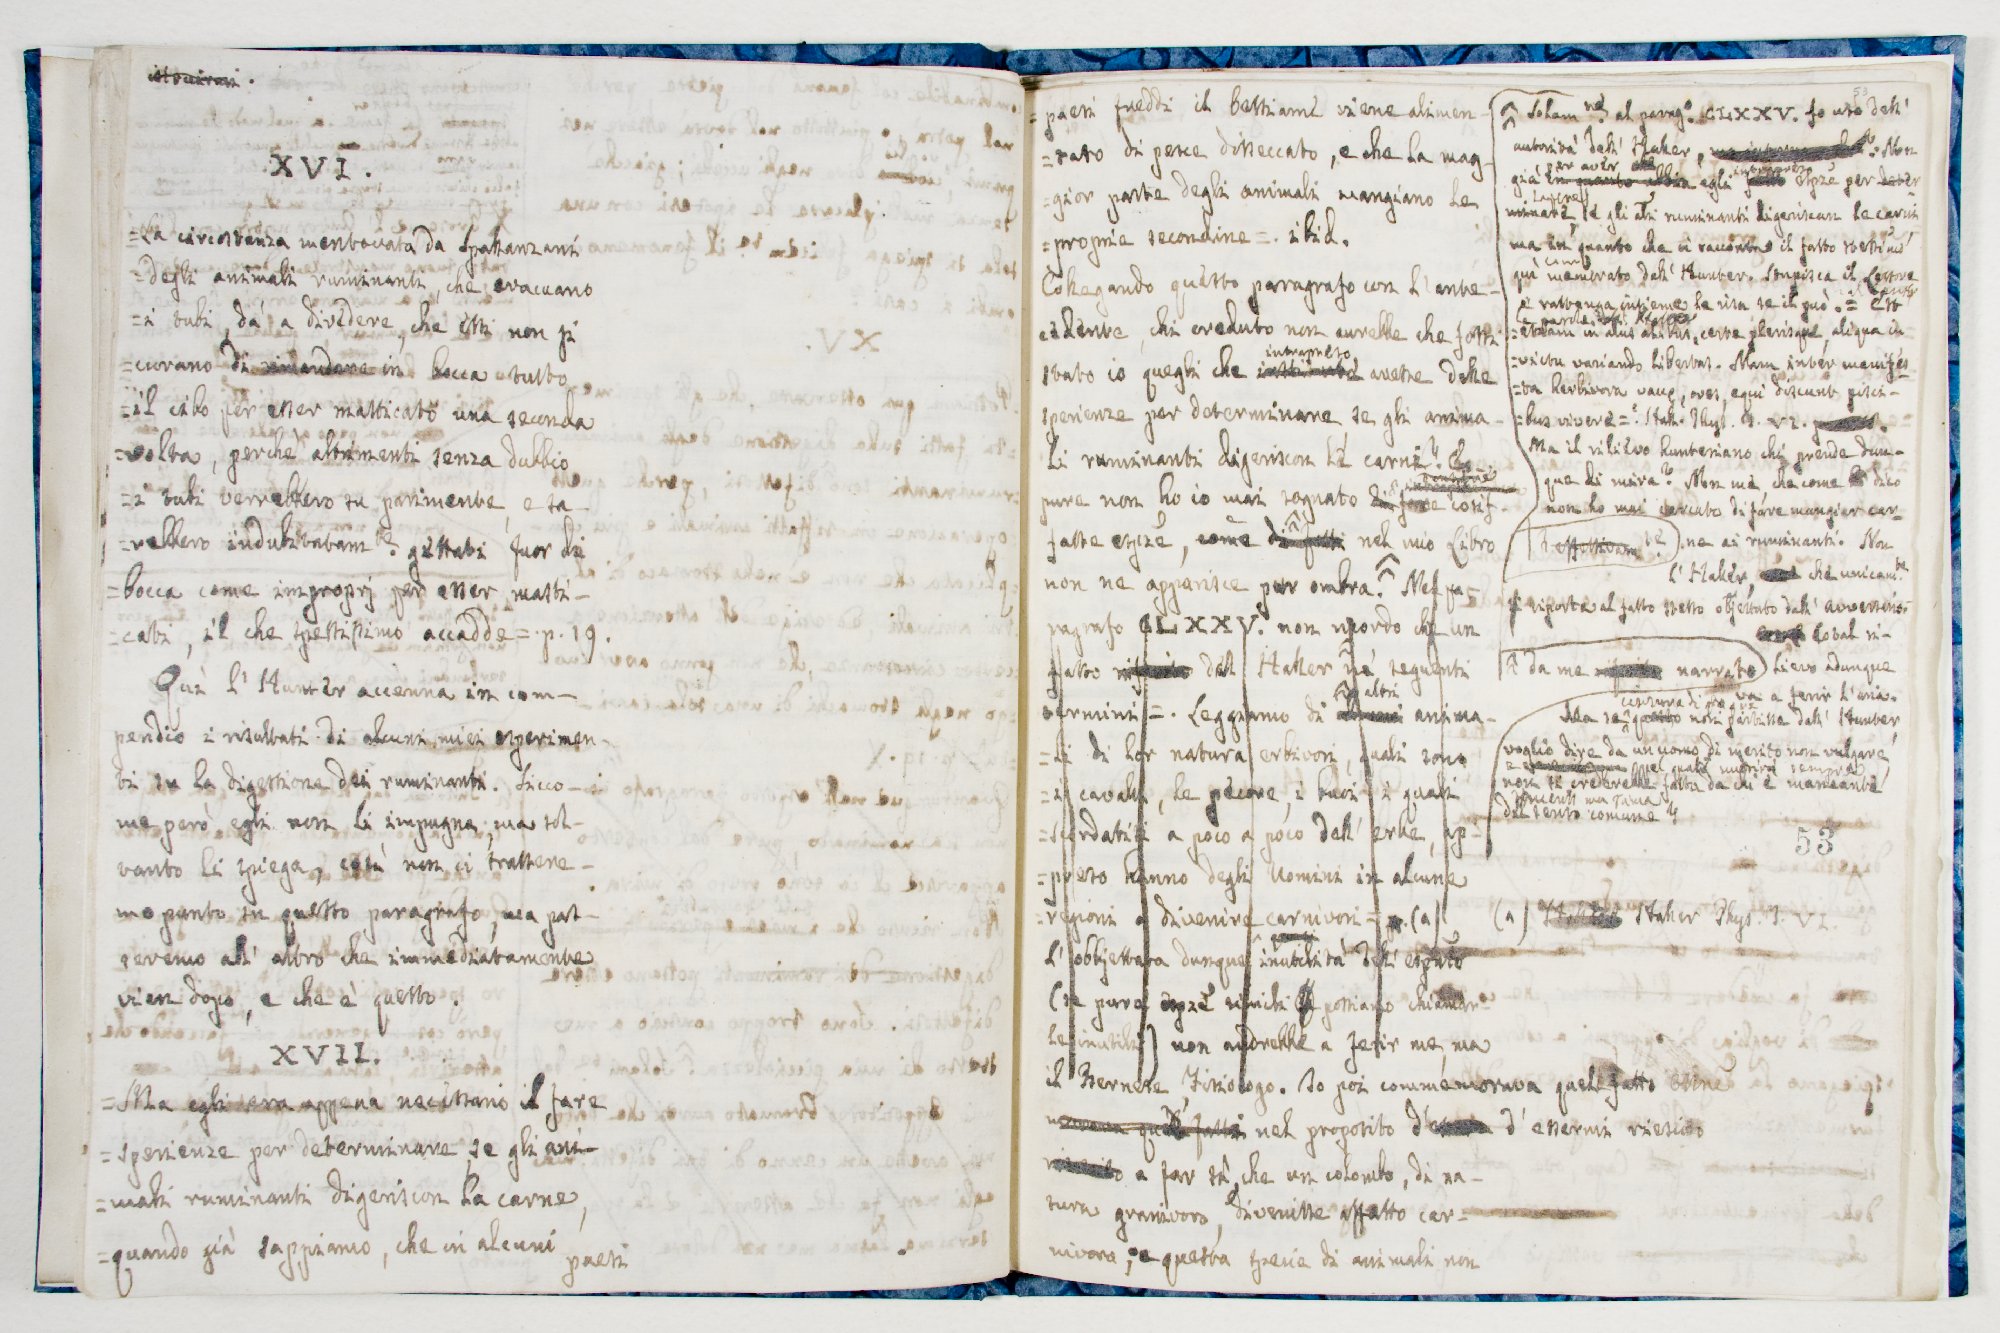 XVI.
=La circostanza mentovata da Spallanzani
=degli animali ruminanti, che evacuano
=i tubi, dà a divedere che essi non si
=curano di rimandare in bocca tutto
=il cibo per esser masticato una seconda
=volta, perchè altrimenti senza dubbio
=i tubi verrebbero su parimente, e sa-
=rebbero indubitatam.te gettati fuor di
=bocca come improprj per esser masti-
=cati, il che spessissimo accadde=. p. 19.
Quì l'Hunter accenna in com-
pendio i risultati di alcuni miei esperimen-
ti su la digestione dei ruminanti. Sicco-
me però egli non li impugna, ma sol-
tanto li spiega, così non ci trattere-
mo punto su questo paragrafo, ma pas-
seremo all'altro che immediatamente
vien dopo, e che è questo.
XVII.
=Ma egli era appena necessario il fare
=sperienze per determinare, se gli ani-
=mali ruminanti digeriscon la carne,
=quando già sappiamo, che in alcuni paesi
=paesi freddi il bestiame viene alimen-
=tato di pesce disseccato, e che la mag-
=gior parte degli animali mangiano le
=proprie secondine=. ibid.
Collegando questo paragrafo con l'ante-
cedente, chi creduto non avrebbe che fossi
stato io quegli che intrapreso avesse delle
sperienze per determinare se gli anima-
li ruminanti digeriscon le carni? Ep-
pure non ho io mai sognato cosif-
fatte espze, come nel mio Libro
non ne apparisce pur ombra. Nel pa-
ragrafo CLXXV. non ricordo che un
fatto dell'Haller ne' seguenti
termini=. Leggiamo di altri anima-
=li di lor natura erbivori, quali sono
=i cavalli, le pecore, i buoi i quali
=scordatisi a poco a poco dell'erbe, ap-
=preso hanno degli Uomini in alcune
=regioni a divenire carnivori=. (a)
L'obbjettata dunque inutilità dell'esperto
(se pure espze simili possiamo chiamar-
le inutili) non andrebbe a ferir me, ma
il Bernese Fisiologo. Io poi commemorava quel fatto
nel proposito d'essermi riescito
a far sì, che un colombo, di na-
tura granivoro, divenisse affatto car-
nivoro; e questa specie di animali non
53
Solam.te al parag.o CLXXV. fo uso dell'
autorità dell'Haller, Non
già per aver egli intrapreso espze per deter
minare, se gli altri ruminanti digeriscan le carni
ma in quanto che ci racconta il fatto stessiss.o
quì memorato dall'Hunter. Stupisca il Lettore
e rattenga insieme le risa se il può.= Est
=etiam in aliis, certe plerisque, aliqua in
=victu variando libertas. Nam inter manifes
=ta herbivora vaccæ, oves, equi discunt pisci-
=bus vivere=. Hall. Phys. T. VI.
Ma il rilievo hunteriano chi prende dun-
que di mira? Non me che come dico
non ho mai cercato di fare mangiar car-
ne ai ruminanti. Non
l'Haller, che unicam.te
si riporta al fatto stesso objettato dall'avversario.
Cotal ri-
lievo adunque
va a ferir l'aria.
da me narrato
Ma se censura di fosse dall'Hunter
voglio dire da un uomo di merito non vulgare
non si crederebbe fatta da chi è mancante
del senso comune?
53
(a) Haller Phys. T. VI.